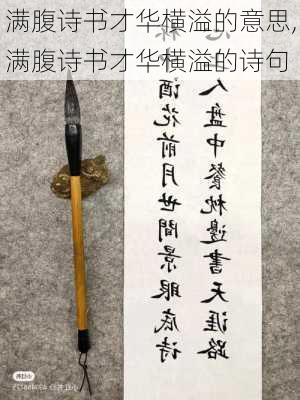 满腹诗书才华横溢的意思,
满腹诗书才华横溢的诗句
酒花前月世間景眼底诗
人盘中餐枕邊書天涯路